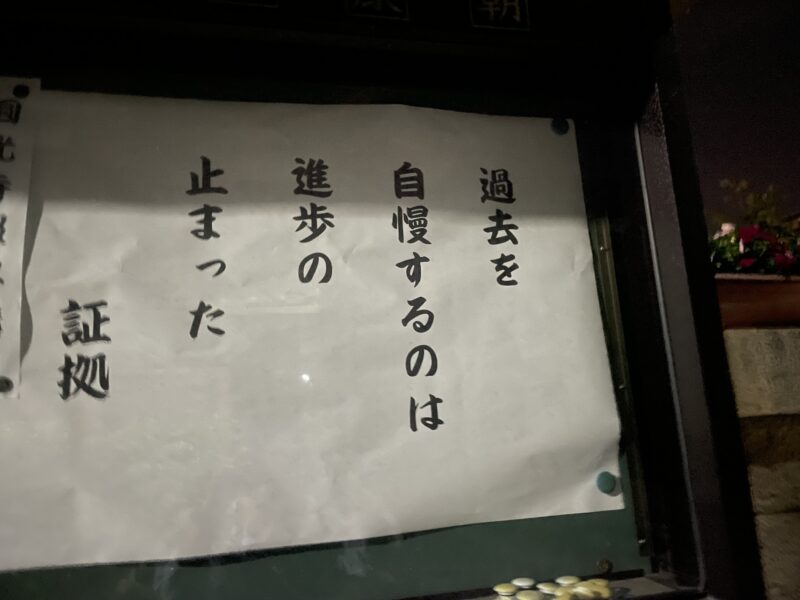 過去を
自慢するのは
進歩の
止まった
証拠